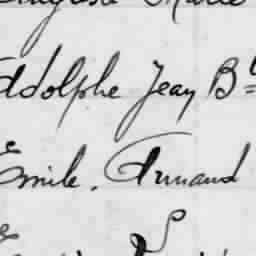 Marie
Adolphe Jean Bte
Emile. Armand